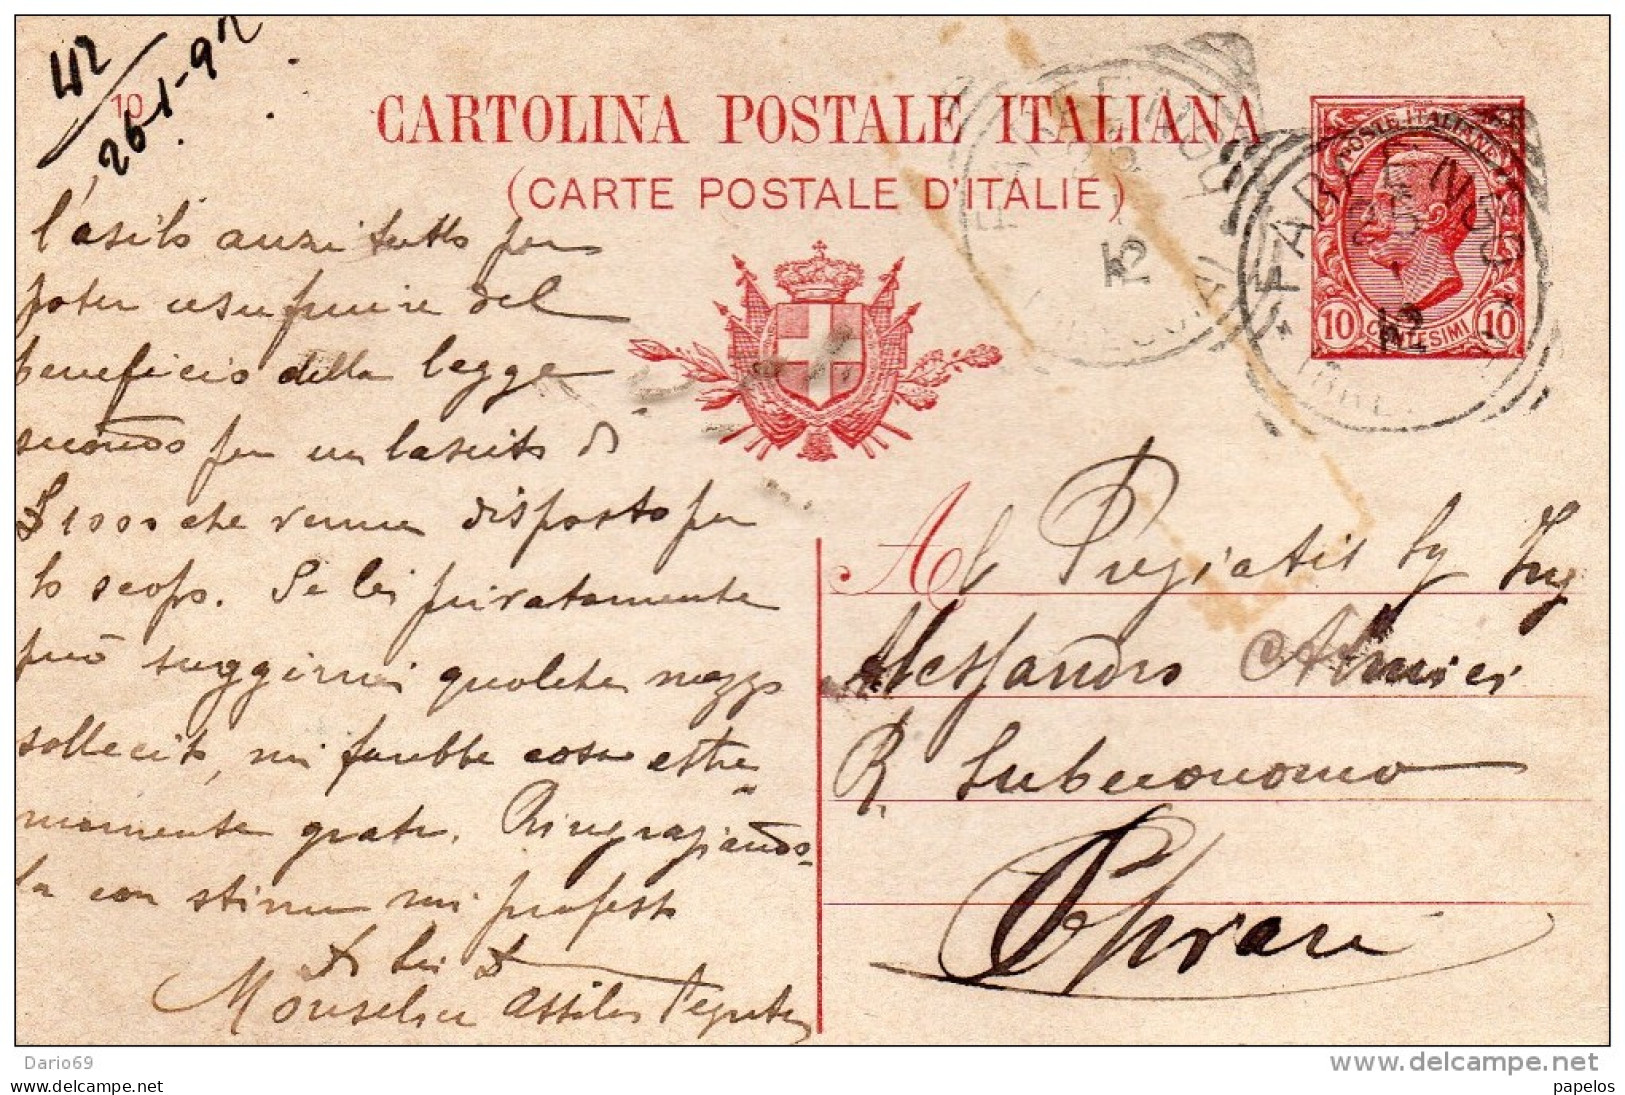 42
26-1-912
10
CARTOLINA POSTALE ITALIANA
(CARTE POSTALE D'ITALIE)
POSTE ITALIANE
10 CENTESIMI 10
FARFENGO
25 1 12
FARFENGO
25 1 12
l'asilo anzi tutto per
poter usufruire del
beneficio della legge
secondo per un lascito di
£ 1000 che venne disposto per
lo scopo. Se lei privatamente
può suggirmi qualche mezzo
sollecito, mi farebbe cosa estre
mamente grata. Ringraziando-
la con stima mi professo
Di Lei
Attilio
Al Pregiatis Sig Ing
Alessandro Amici
R. Subeconomo
Chiari
Dario69
delcampe.net
The world's largest marketplace for collectors
papelos